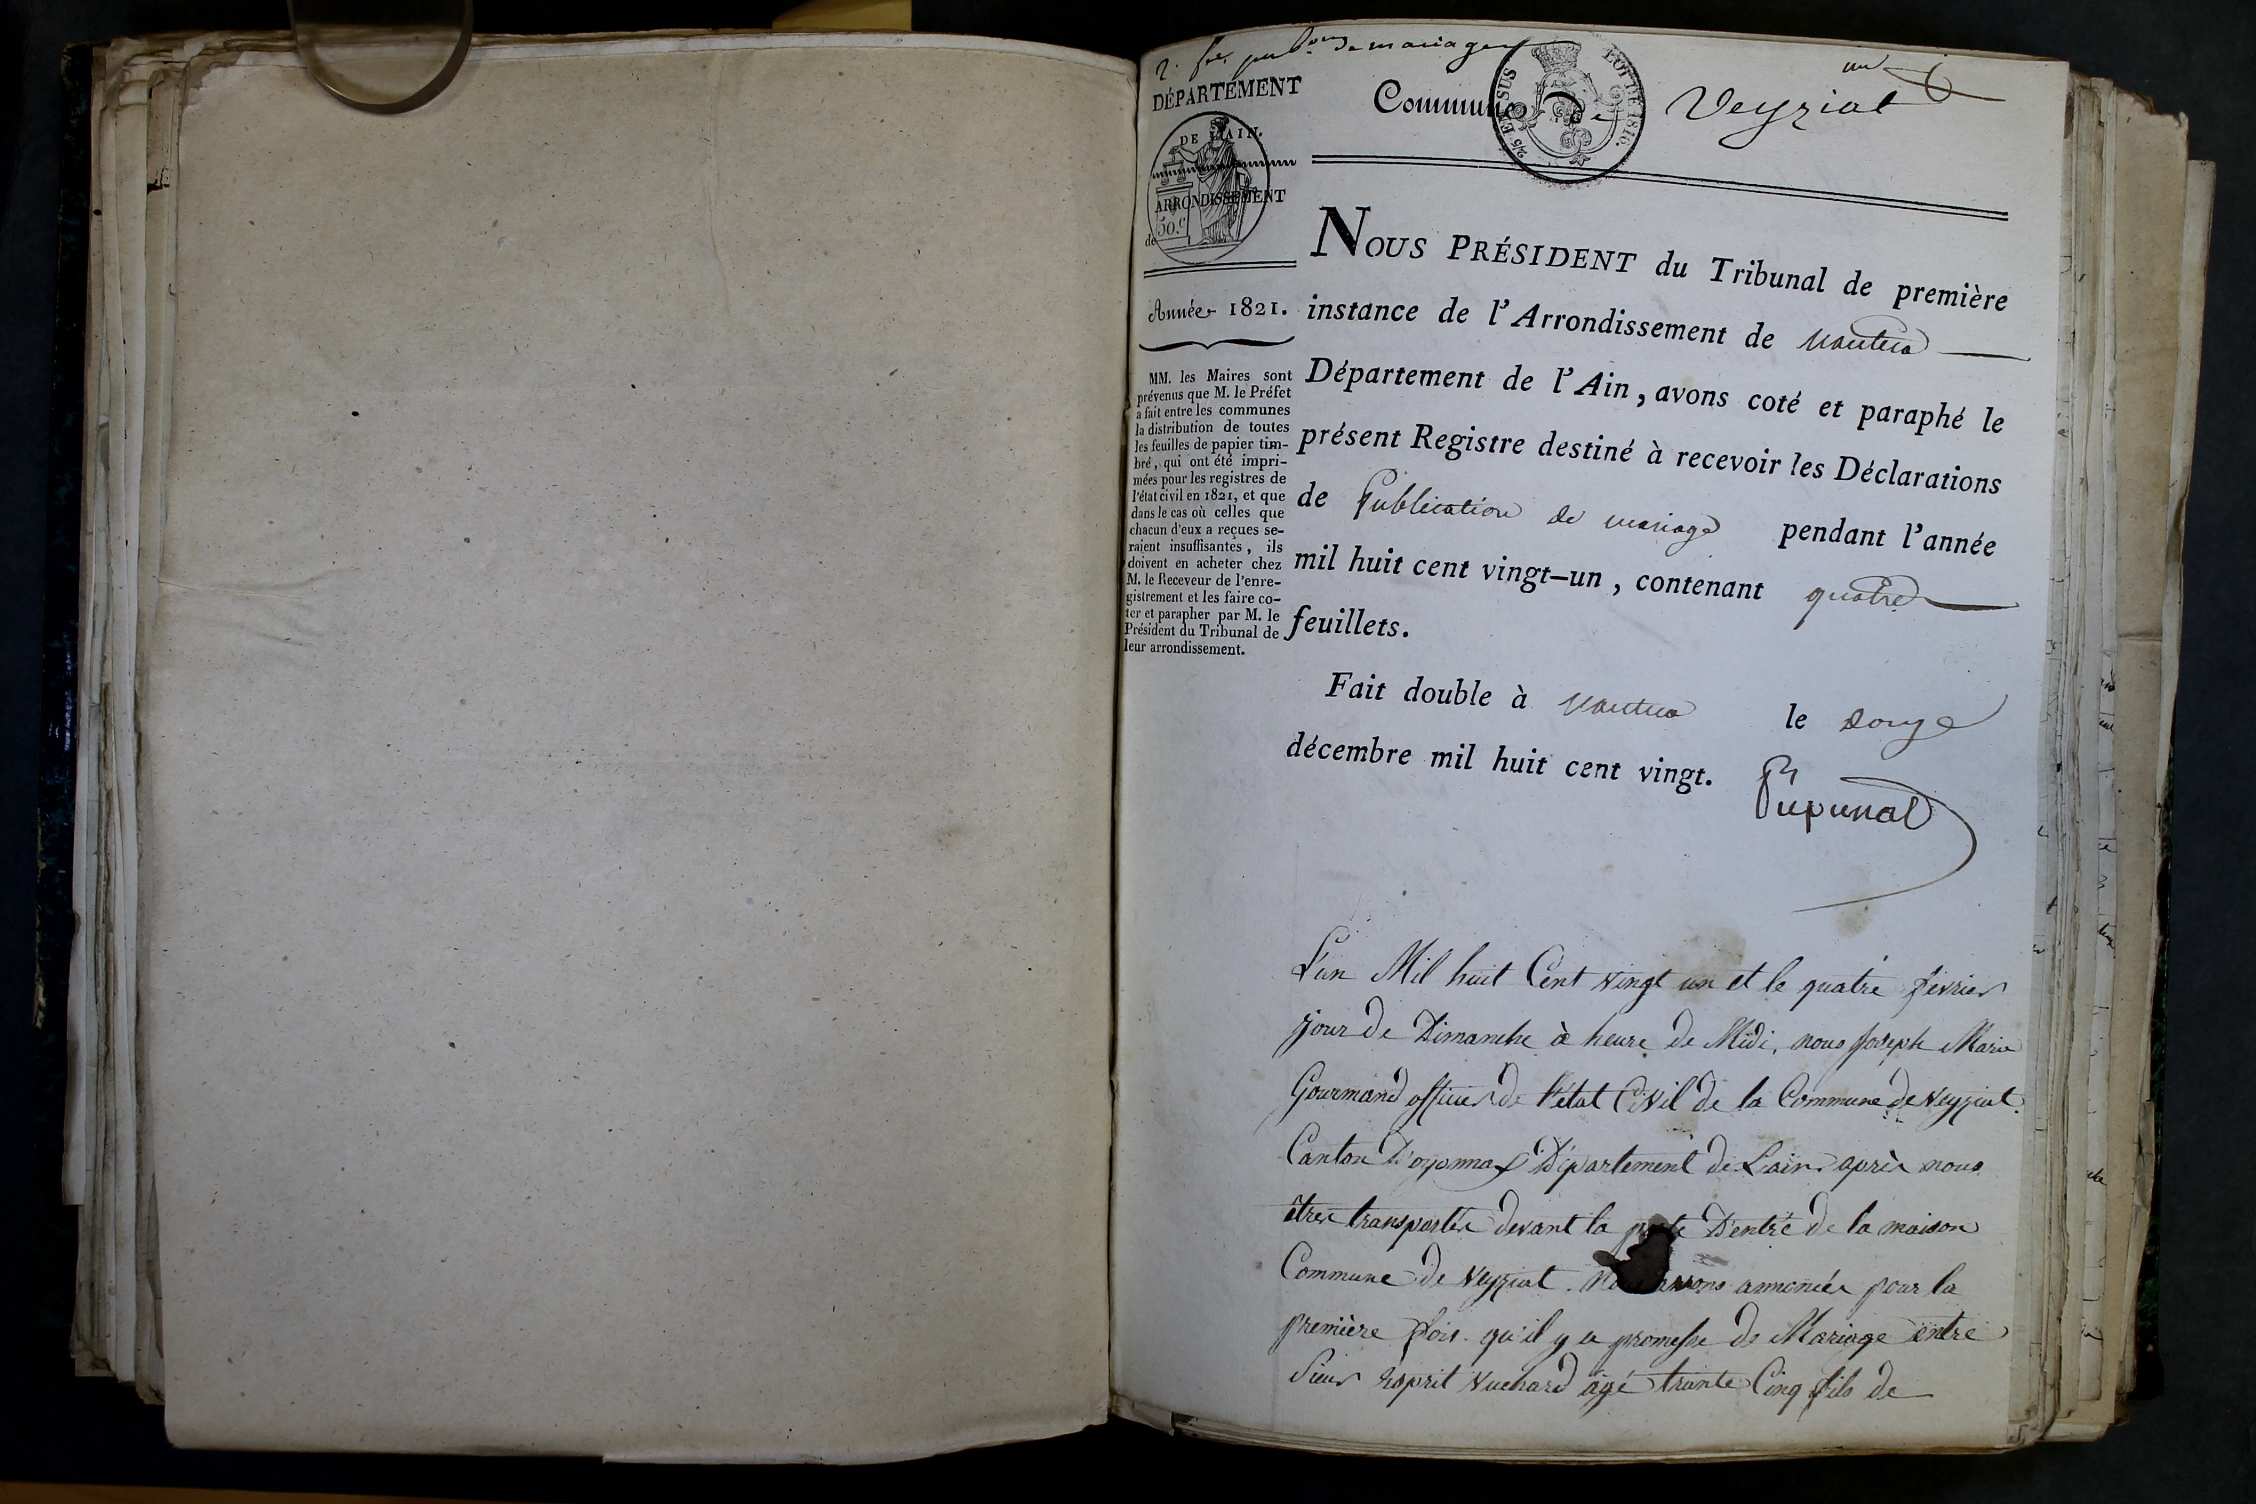 de mariage
un
DÉPARTEMENT
DE L'AIN.
ARRONDISSEMENT
de
50.c
Commune de Veyziat
2/5 EN SUS
LOI DE 1816.
Année 1821.
MM. les Maires sont
prévenus que M. le Préfet
a fait entre les communes
la distribution de toutes
les feuilles de papier tim-
bré, qui ont été impri-
mées pour les registres de
l'état civil en 1821, et que
dans le cas où celles que
chacun d'eux a reçues se-
raient insuffisantes, ils
doivent en acheter chez
M. le Receveur de l'enre-
gistrement et les faire co-
ter et parapher par M. le
Président du Tribunal de
leur arrondissement.
NOUS PRÉSIDENT du Tribunal de première
instance de l'Arrondissement de Nantua
Département de l'Ain, avons coté et paraphé le
présent Registre destiné à recevoir les Déclarations
de Publication de mariage pendant l'année
mil huit cent vingt-un, contenant quatre
feuillets.
Fait double à Nantua le douze
décembre mil huit cent vingt.
L'an Mil huit Cent vingt un et le quatre fevrier
jour de Dimanche à heure de Midi, nous Joseph Marie
Gourmand officier de l'état Civil de la Commune de Veyziat
Canton D'oyonnax Département de Lain après nous
êtres transportés devant la porte D'entré de la maison
Commune de Veyziat. Nous avons annoncés pour la
première fois qu'il y a promesse de Mariage entre
Sieur Esprit Vuchard âgé trante Cinq fils de